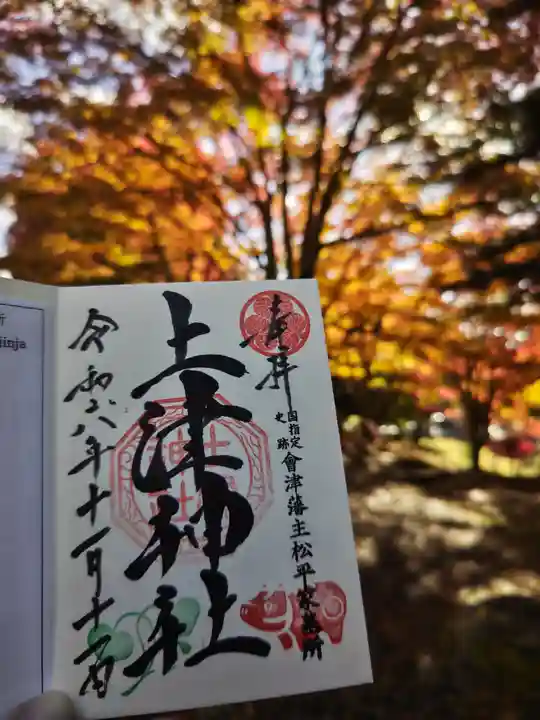 奉拝
国指定
史跡
會津藩主松平家墓所
土津神社
令和六年十一月十一日
所
Jinja